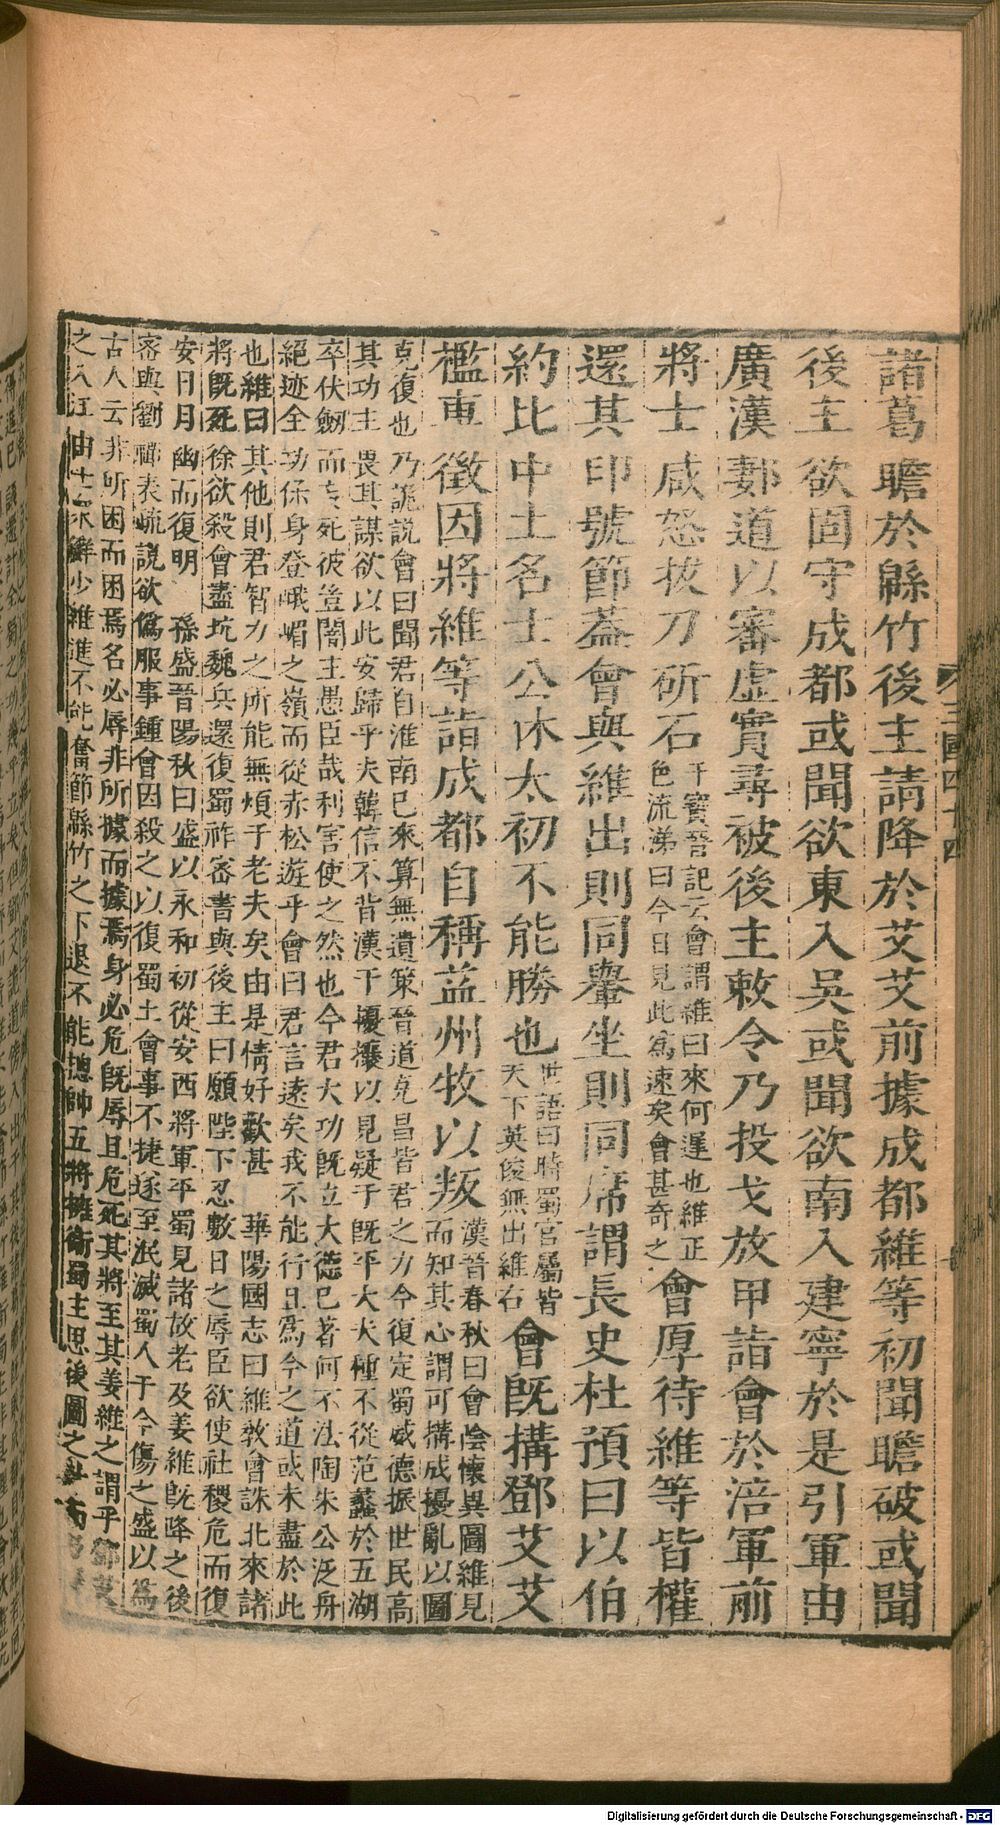 諸葛瞻於緜竹後主請降於艾艾前據成都維等初聞瞻破或聞
後主欲固守成都或聞欲東入吳或聞欲南入建寧於是引軍由
廣漢郪道以審虛實尋被後主敕令乃投戈放甲詣會於涪軍前
將士咸怒拔刀斫石
干寶晉記云會謂維曰來何遲也維正
色流涕曰今日見此為速矣會甚奇之
會厚待維等皆權
還其印號節蓋會與維出則同轝坐則同席謂長史杜預曰以伯
約比中土名士公休太初不能勝也
世語曰時蜀官屬皆
天下英俊無出維右
會旣搆鄧艾艾
檻車徵因將維等詣成都自稱益州牧以叛
漢晉春秋曰會陰懷異圖維見
而知其心謂可搆成擾亂以圖
克復也乃詭說會曰聞君自淮南已來算無遺策晉道克昌皆君之力今復定蜀威德振世民高
其功主畏其謀欲以此安歸乎夫韓信不背漢于擾攘以見疑于旣平大夫種不從范蠡於五湖
卒伏劒而妄死彼豈闇主愚臣哉利害使之然也今君大功旣立大德已著何不法陶朱公泛舟
絕迹全功保身登峨嵋之嶺而從赤松遊乎會曰君言遠矣我不能行且為今之道或未盡於此
也維曰其他則君智力之所能無煩于老夫矣由是情好歡甚　華陽國志曰維教會誅北來諸
將旣死徐欲殺會盡坑魏兵還復蜀祚密書與後主曰願陛下忍數日之辱臣欲使社稷危而復
安日月幽而復明　孫盛晉陽秋曰盛以永和初從安西將軍平蜀見諸故老及姜維旣降之後
密與劉禪表疏說欲僞服事鍾會因殺之以復蜀土會事不捷遂至泯滅蜀人于今傷之盛以為
古人云非所困而困焉名必辱非所據而據焉身必危旣辱且危死其將至其姜維之謂乎鄧艾
之入江由士眾鮮少維進不能奮節緜竹之下退不能總帥五將擁衛蜀主思後圖之計而乃
三國四十四
Digitalisierung gefördert durch die Deutsche Forschungsgemeinschaft - DFG